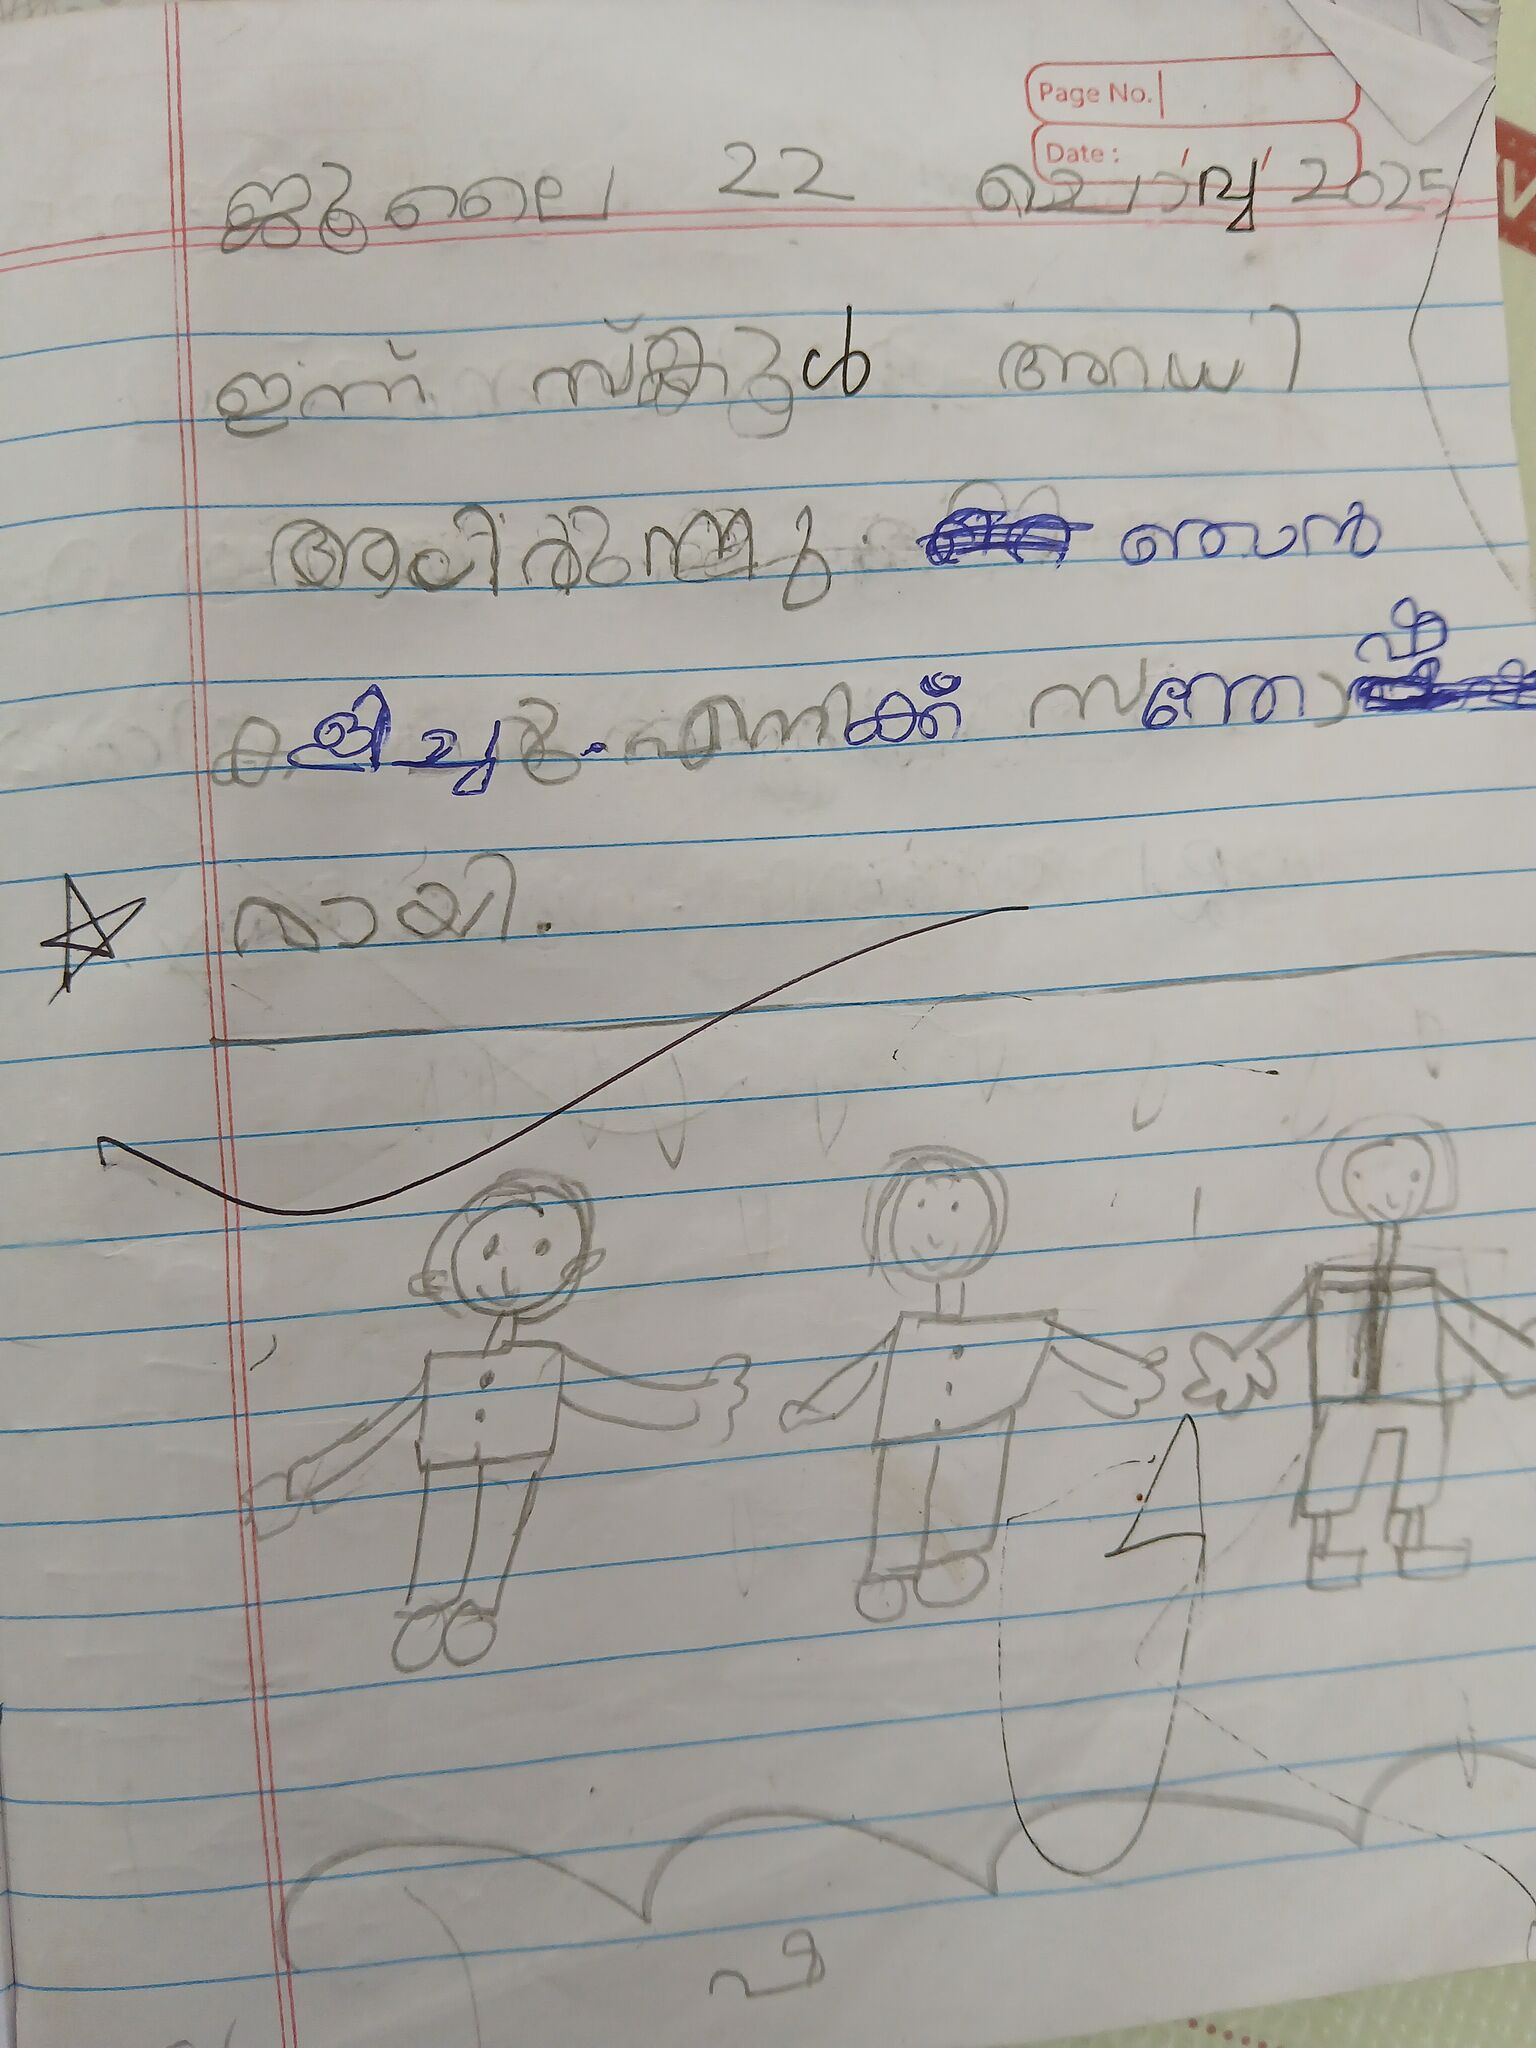 Page No.
Date :
ജൂലൈ 22 ചൊവ്വ 2025
ഇന്ന് സ്കൂൾ അവധി
ആയിരുന്നു ഞാൻ
കളിച്ചു. എനിക്ക് സന്തോഷ
മായി.
ഷ